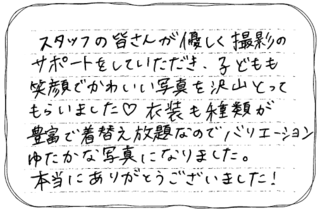 スタッフの皆さんが優しく撮影の
サポートをしていただき、子どもも
笑顔でかわいい写真を沢山とって
もらいました♡ 衣装も種類が
豊富で着替え放題なのでバリエーション
ゆたかな写真になりました。
本当にありがとうございました!